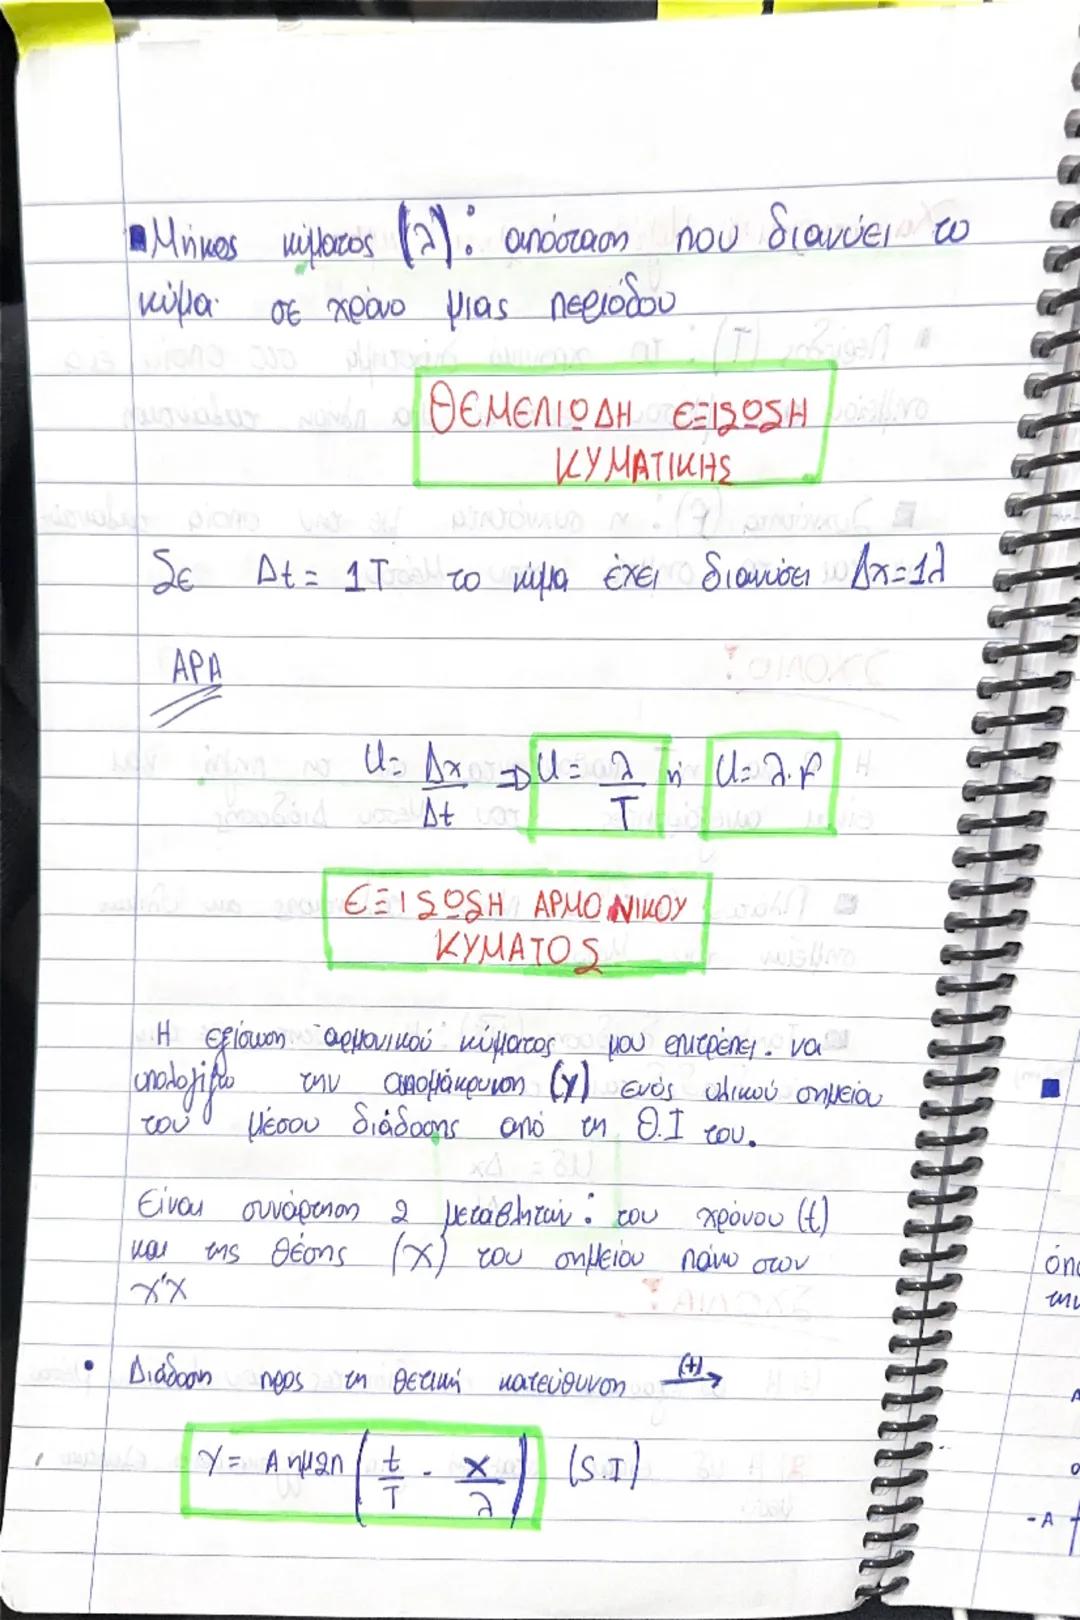 Μήκος κύματος (λ): απόσταση που διανύει το
κύμα σε χρόνο μιας περιόδου
ΘΕΜΕΛΙΩΔΗ ΕΞΙΣΩΣΗ
ΚΥΜΑΤΙΚΗΣ
Σε Δt = 1T το κύμα έχει διανύσει Δx=1λ
ΑΡΑ
U = Δx/Δt => U = λ/T ή U = λ·f
ΕΞΙΣΩΣΗ ΑΡΜΟΝΙΚΟΥ
ΚΥΜΑΤΟΣ
Η εξίσωση αρμονικού κύματος μου επιτρέπει να
υπολογίζω την απομάκρυνση (y) ενός υλικού σημείου
του μέσου διάδοσης από τη Θ.Ι του.
Είναι συνάρτηση 2 μεταβλητών: του χρόνου (t)
και της θέσης (x) του σημείου πάνω στον
x'x
• Διάδοση προς τη θετική κατεύθυνση (+)→
y = A ημ2π (t/T - x/λ) (S.I)
-A